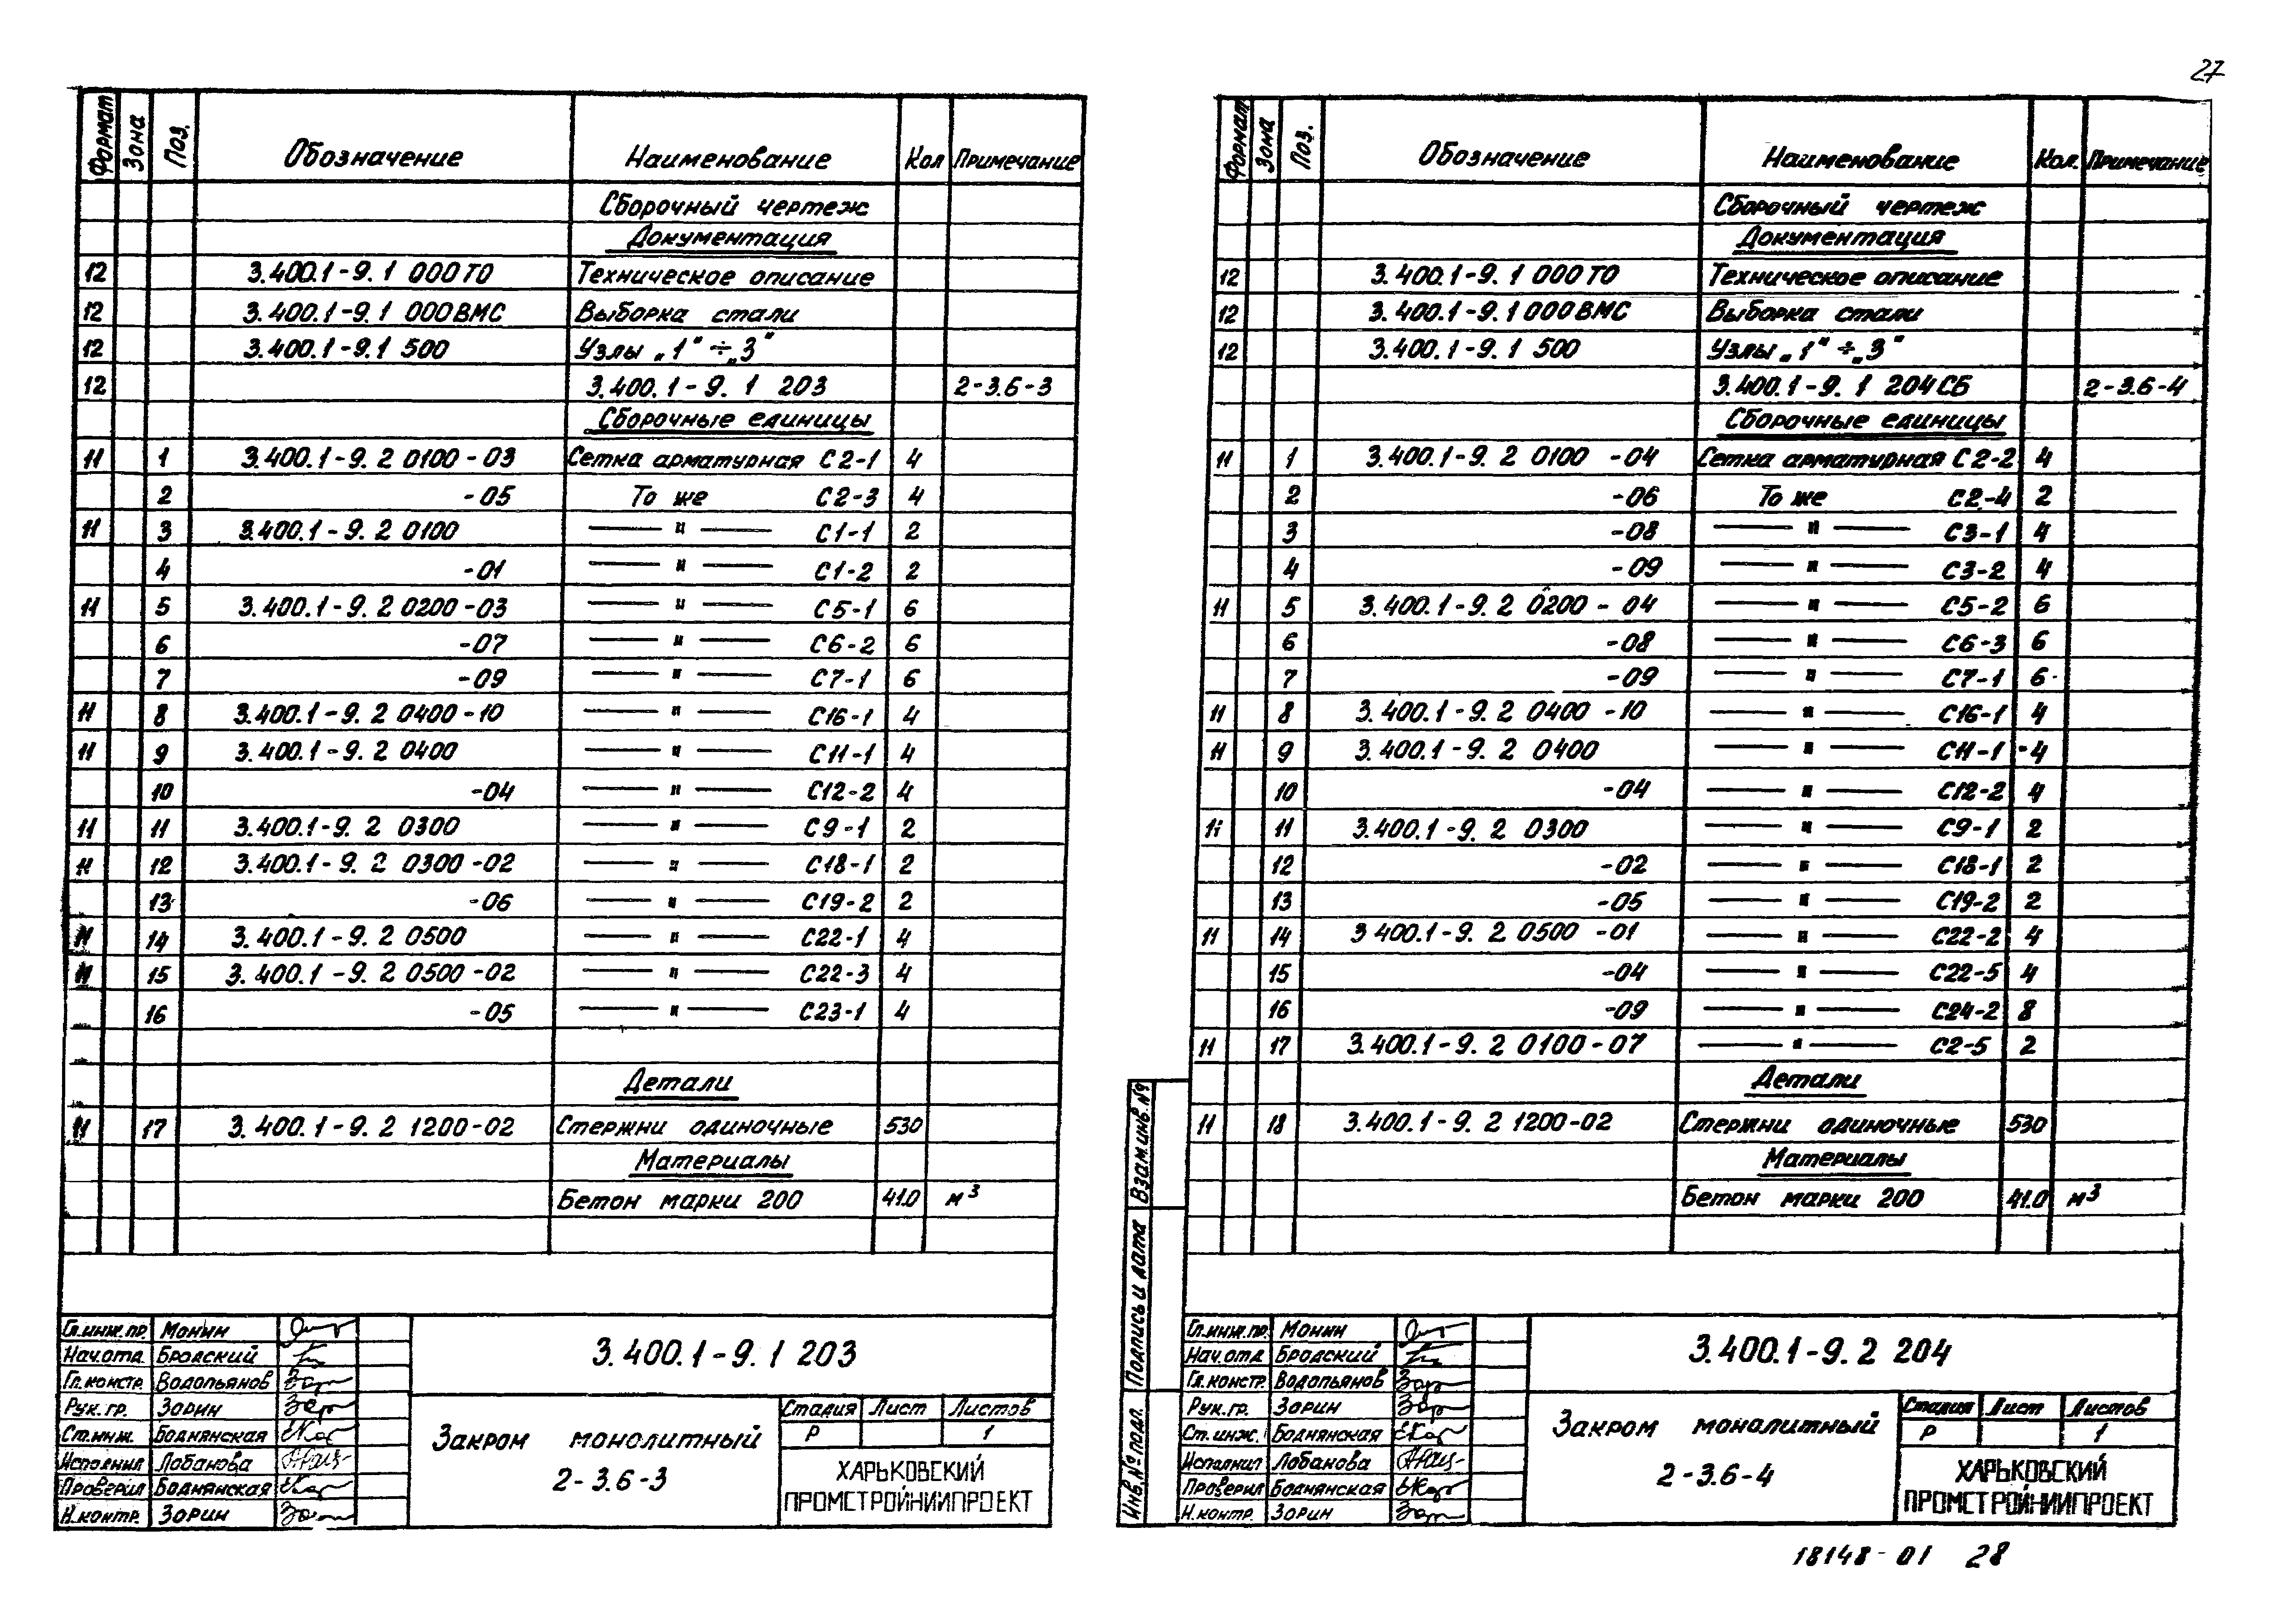 27
Формат Зона Поз. Обозначение Наименование Кол Примечание
Сборочный чертеж
Документация
12 3.400.1-9.1 000ТО Техническое описание
12 3.400.1-9.1 000ВМС Выборка стали
12 3.400.1-9.1 500 Узлы „1" ÷ „3"
12 3.400.1-9.1 203 2-3.6-3
Сборочные единицы
11 1 3.400.1-9.2 0100-03 Сетка арматурная С2-1 4
2 -05 То же С2-3 4
11 3 3.400.1-9.2 0100 — " — С1-1 2
4 -01 — " — С1-2 2
11 5 3.400.1-9.2 0200-03 — " — С5-1 6
6 -07 — " — С6-2 6
7 -09 — " — С7-1 6
11 8 3.400.1-9.2 0400-10 — " — С16-1 4
11 9 3.400.1-9.2 0400 — " — С11-1 4
10 -04 — " — С12-2 4
11 11 3.400.1-9.2 0300 — " — С9-1 2
11 12 3.400.1-9.2 0300-02 — " — С18-1 2
13 -06 — " — С19-2 2
11 14 3.400.1-9.2 0500 — " — С22-1 4
11 15 3.400.1-9.2 0500-02 — " — С22-3 4
16 -05 — " — С23-1 4
Детали
11 17 3.400.1-9.2 1200-02 Стержни одиночные 530
Материалы
Бетон марки 200 41.0 м³
Гл.инж.пр. Монин
Нач.отд Бродский
Гл.констр. Водопьянов
Рук.гр. Зорин
Ст.инж. Боднянская
Исполнил Лобанова
Проверил Боднянская
Н.контр. Зорин
3.400.1-9.1 203
Закром монолитный
2-3.6-3
Стадия Лист Листов
Р 1
ХАРЬКОВСКИЙ
ПРОМСТРОЙНИИПРОЕКТ
Формат Зона Поз. Обозначение Наименование Кол. Примечание
Сборочный чертеж
Документация
12 3.400.1-9.1 000ТО Техническое описание
12 3.400.1-9.1 000ВМС Выборка стали
12 3.400.1-9.1 500 Узлы „1" ÷ „3"
3.400.1-9.1 204СБ 2-3.6-4
Сборочные единицы
11 1 3.400.1-9.2 0100 -04 Сетка арматурная С2-2 4
2 -06 То же С2-4 2
3 -08 — " — С3-1 4
4 -09 — " — С3-2 4
11 5 3.400.1-9.2 0200-04 — " — С5-2 6
6 -08 — " — С6-3 6
7 -09 — " — С7-1 6
11 8 3.400.1-9.2 0400-10 — " — С16-1 4
11 9 3.400.1-9.2 0400 — " — С11-1 4
10 -04 — " — С12-2 4
11 11 3.400.1-9.2 0300 — " — С9-1 2
12 -02 — " — С18-1 2
13 -05 — " — С19-2 2
11 14 3.400.1-9.2 0500 -01 — " — С22-2 4
15 -04 — " — С22-5 4
16 -09 — " — С24-2 8
11 17 3.400.1-9.2 0100-07 — " — С2-5 2
Детали
11 18 3.400.1-9.2 1200-02 Стержни одиночные 530
Материалы
Бетон марки 200 41.0 м³
Взам.инв.№
Подпись и дата
Инв.№подл.
Гл.инж.пр. Монин
Нач.отд Бродский
Гл.констр. Водопьянов
Рук.гр. Зорин
Ст.инж. Боднянская
Исполнил Лобанова
Проверил Боднянская
Н.контр. Зорин
3.400.1-9.2 204
Закром монолитный
2-3.6-4
Стадия Лист Листов
Р 1
ХАРЬКОВСКИЙ
ПРОМСТРОЙНИИПРОЕКТ
18148-01 28